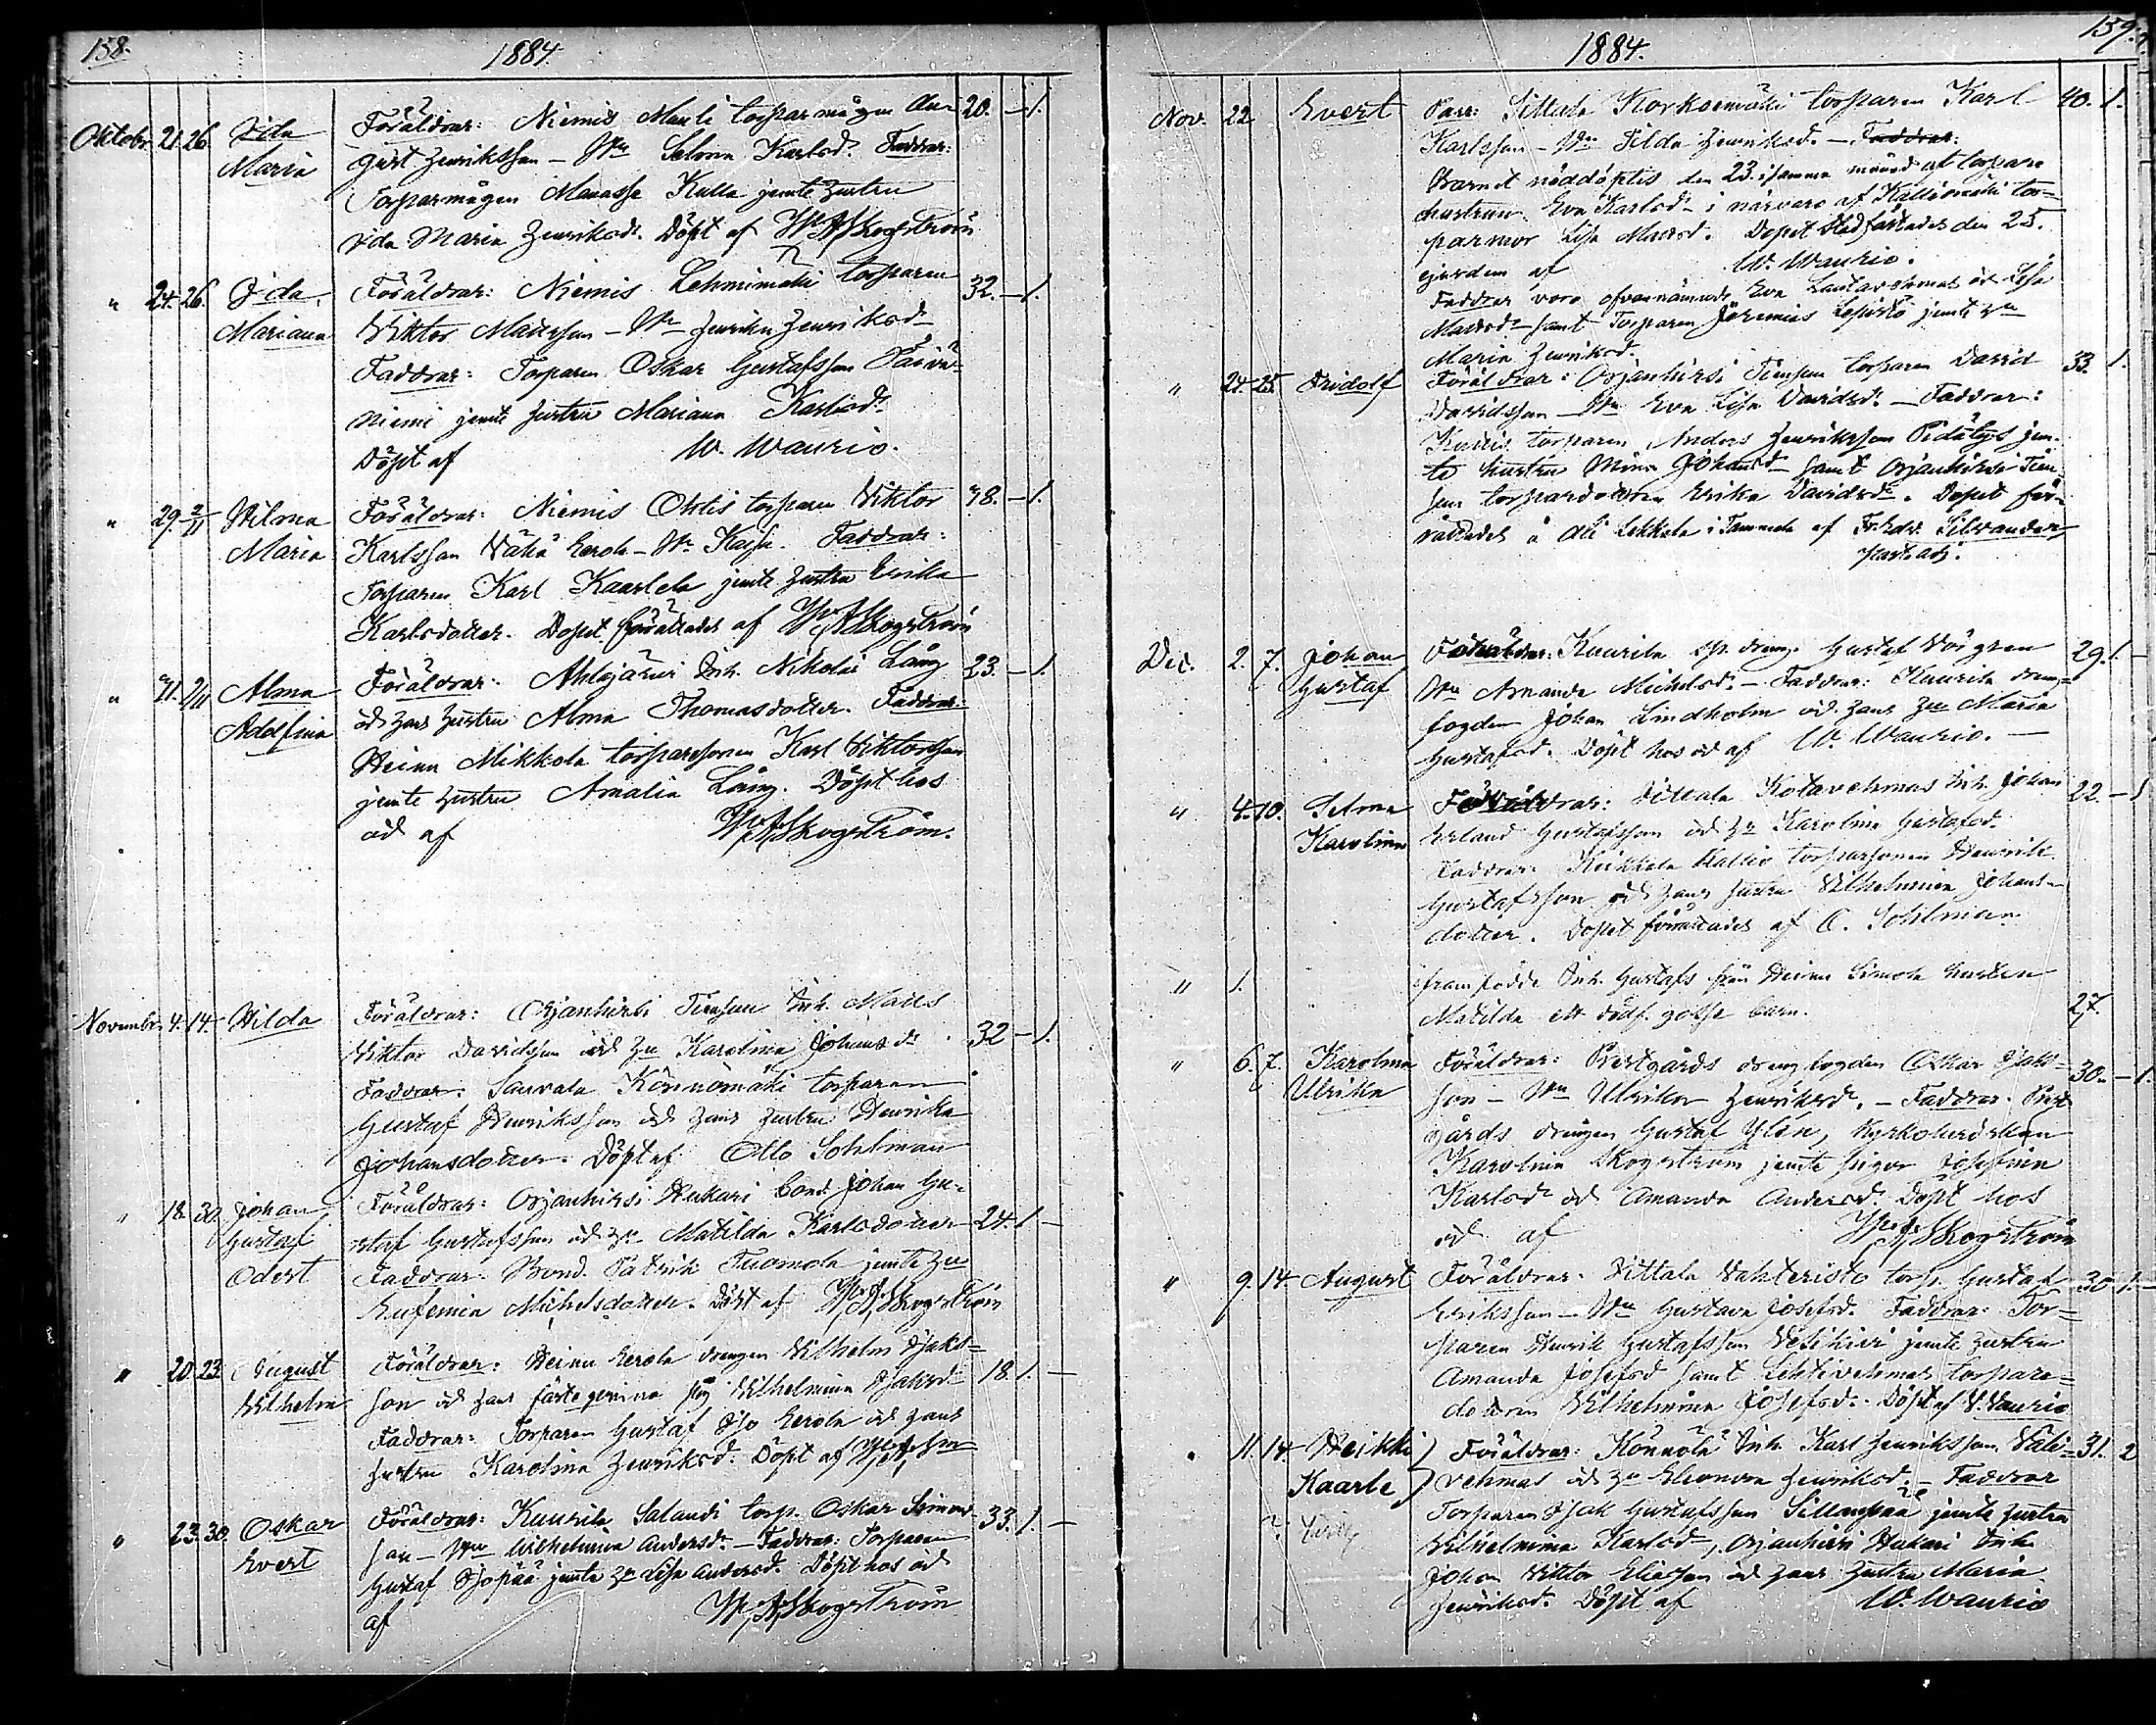 158.
1884.
Oktober 21. 26. Ida Föräldrar: Niemis Mauli torparmågen Au- 20. - 1.
Maria gust Henriksson - Hu Selma Karlsd. Faddrar:
Torparmågen Manasse Kulla jemte hustru
Ida Maria Henriksd. Döpt af W. A. Skogström
" 24. 26. Ida Föräldrar: Niemis Lehmimäki torparen 32. - 1.
Mariana Viktor Mattsson - Hu Henrika Henriksd.
Faddrar: Torparen Oskar Gustafsson Päivä-
niemi jemte hustru Mariana Karlsd.
Döpt af W. Waurio.
" 29. 2/11 Hilma Föräldrar: Niemis Ohtis torparen Viktor 48. - 1.
Maria Karlsson Vähä Eerola - Hu Kajsa. Faddrar:
Torparen Karl Kaarlela jemte hustru Erika
Karlsdotter. Dopet förättades af W. A. Skogström
" 31. 2/11 Alma Föräldrar: Ahlajärvi Inh. Nikolai Lång 23. - 1.
Adolfina och hans hustru Alma Thomasdotter. Faddrar:
Heinu Mikkola torparesonen Karl Viktorsson
jemte hustru Amalia Lång. Döpt hos
och af W. A. Skogström.
November 4. 14. Hilda Föräldrar: Orjanhirsi Tiensuu Inh. Matts
Viktor Davidsson och hu Karolina Johansd. 32 - 1.
Faddrar: Sauvala Könnömäki torparen
Gustaf Henriksson och hans hustru Henrika
Johansdotter. Döpt af Otto Sohlman
" 18. 30. Johan Föräldrar: Orjanhirsi Hukari bond. Johan Gu-
Gustaf staf Gustafsson och hu Matilda Karlsdotter 24. 1 -
Odert Faddrar: Bond. Patrik Tuomola jemte hu
Eufemia Michelsdotter. Döpt af W. A. Skogström
" 20. 23. August Föräldrar: Heinu Eerola drengen Vilhelm Isaks-
Vilhelm son och hans Vilhelmina Isaksd. 18. 1. -
Faddrar: Torparen Gustaf Iso Eerola och hans
hustru Karolina Henriksd. Döpt af
" 23. 30. Oskar Föräldrar: Kuurila Salaudi torp. Oskar Simons- 33. 1. -
Evert son - Hu Wilhelmina Andersd. - Faddrar: Torparen
Gustaf jemte hu Lisa Andersd. Döpt hos och
af W. A. Skogström
159.
1884.
Nov. 22 Evert Parr: Sittala Korkeemäki torparen Karl 40. 1.
Karlsson - Hu Tilda Henriksd. - Faddrar:
Barnet nöddöptes den 23 i samma månad af torpare
hustrun Eva Karlsd. i närvaro af Kalliomäki tor-
parmor Lisa Mattsd. Dopet stadfästades den 25.
ejusdem af W. Waurio.
Faddrar voro ofvannämnde Eva Lautavehmas och Lisa
Mattsd. samt Torparen Jeremias Lepistö jemte hu
Maria Henriksd.
" 24. 25. Fridolf Föräldrar: Orjanhirsi Tiensuu torparen David 33. 1.
Davidsson - Hu Eva Lisa Davidsd. - Faddrar:
torparen Anders Henriksson jem-
te hustru Mina Johansd. samt Orjanhirsi Tien-
suu torpardottren Erika Davidsd. Dopet för-
rättades å Ali Lekkala i Tammela af Fr. Edv. Silvander,
past. adj.
Dec. 2. 7. Johan Föräldrar: Kuurila sp. dreng. Gustaf Sörgren 29. 1. -
Gustaf Hu Amanda Michelsd. - Faddrar: Kuurila dreng-
fogden Johan Lindholm och hans hu Maria
Gustafsd. Döpt hos och af W. Waurio. -
" 4. 10. Selma Föräldrar: Sittala Kotavehmas Inh. Johan 22. - 1
Karolina Erland Gustafsson och hu Karolina Gustafsd.
Faddrar: Keikkala Kallio torparsonen Henrik
Gustafsson och hans hustru Vilhelmina Johans-
dotter. Dopet förättades af O. Sohlman
" 1. framfödde Inh. Gustafs från Heinu Simola hustru
Matilda ett dödf. gosse barn. 27.
" 6. 7. Karolina Föräldrar: Prestgårds drengfogden Oskar Isaks- 30. - 1.
Ulrika son - Hu Ulrika Henriksd. - Faddrar: Prest-
gårds drengen Gustaf Ylén, Kyrkoherdskan
Karolina Skogström jemte pigor Josefina
Karlsd. och Amanda Andersd. Döpt hos
och af W. A. Skogström
" 9. 14. August Föräldrar: Sittala Vahteristo torp. Gustaf 30 1. -
Eriksson - Hu Gustava Josefsd. Faddrar: Tor-
paren Henrik Gustafsson Vesikivi jemte hustru
Amanda Josefsd. samt Lehtivehmas torpare-
dottren Vilhelmina Josefsd. Döpt af V. Waurio
" 11. 14. Heikki Föräldrar: Könnölä Inh. Karl Henriksson Väli- 31. 2
Kaarle vehmas och hu Eleonora Henriksd. - Faddrar
Torparen Isak Gustafsson Sillanpää jemte hustru
Vilhelmina Karlsd., Orjanhirsi Hukari Inh.
Johan Viktor Eliasson och hans hustru Maria
Henriksd. Döpt af W. Waurio